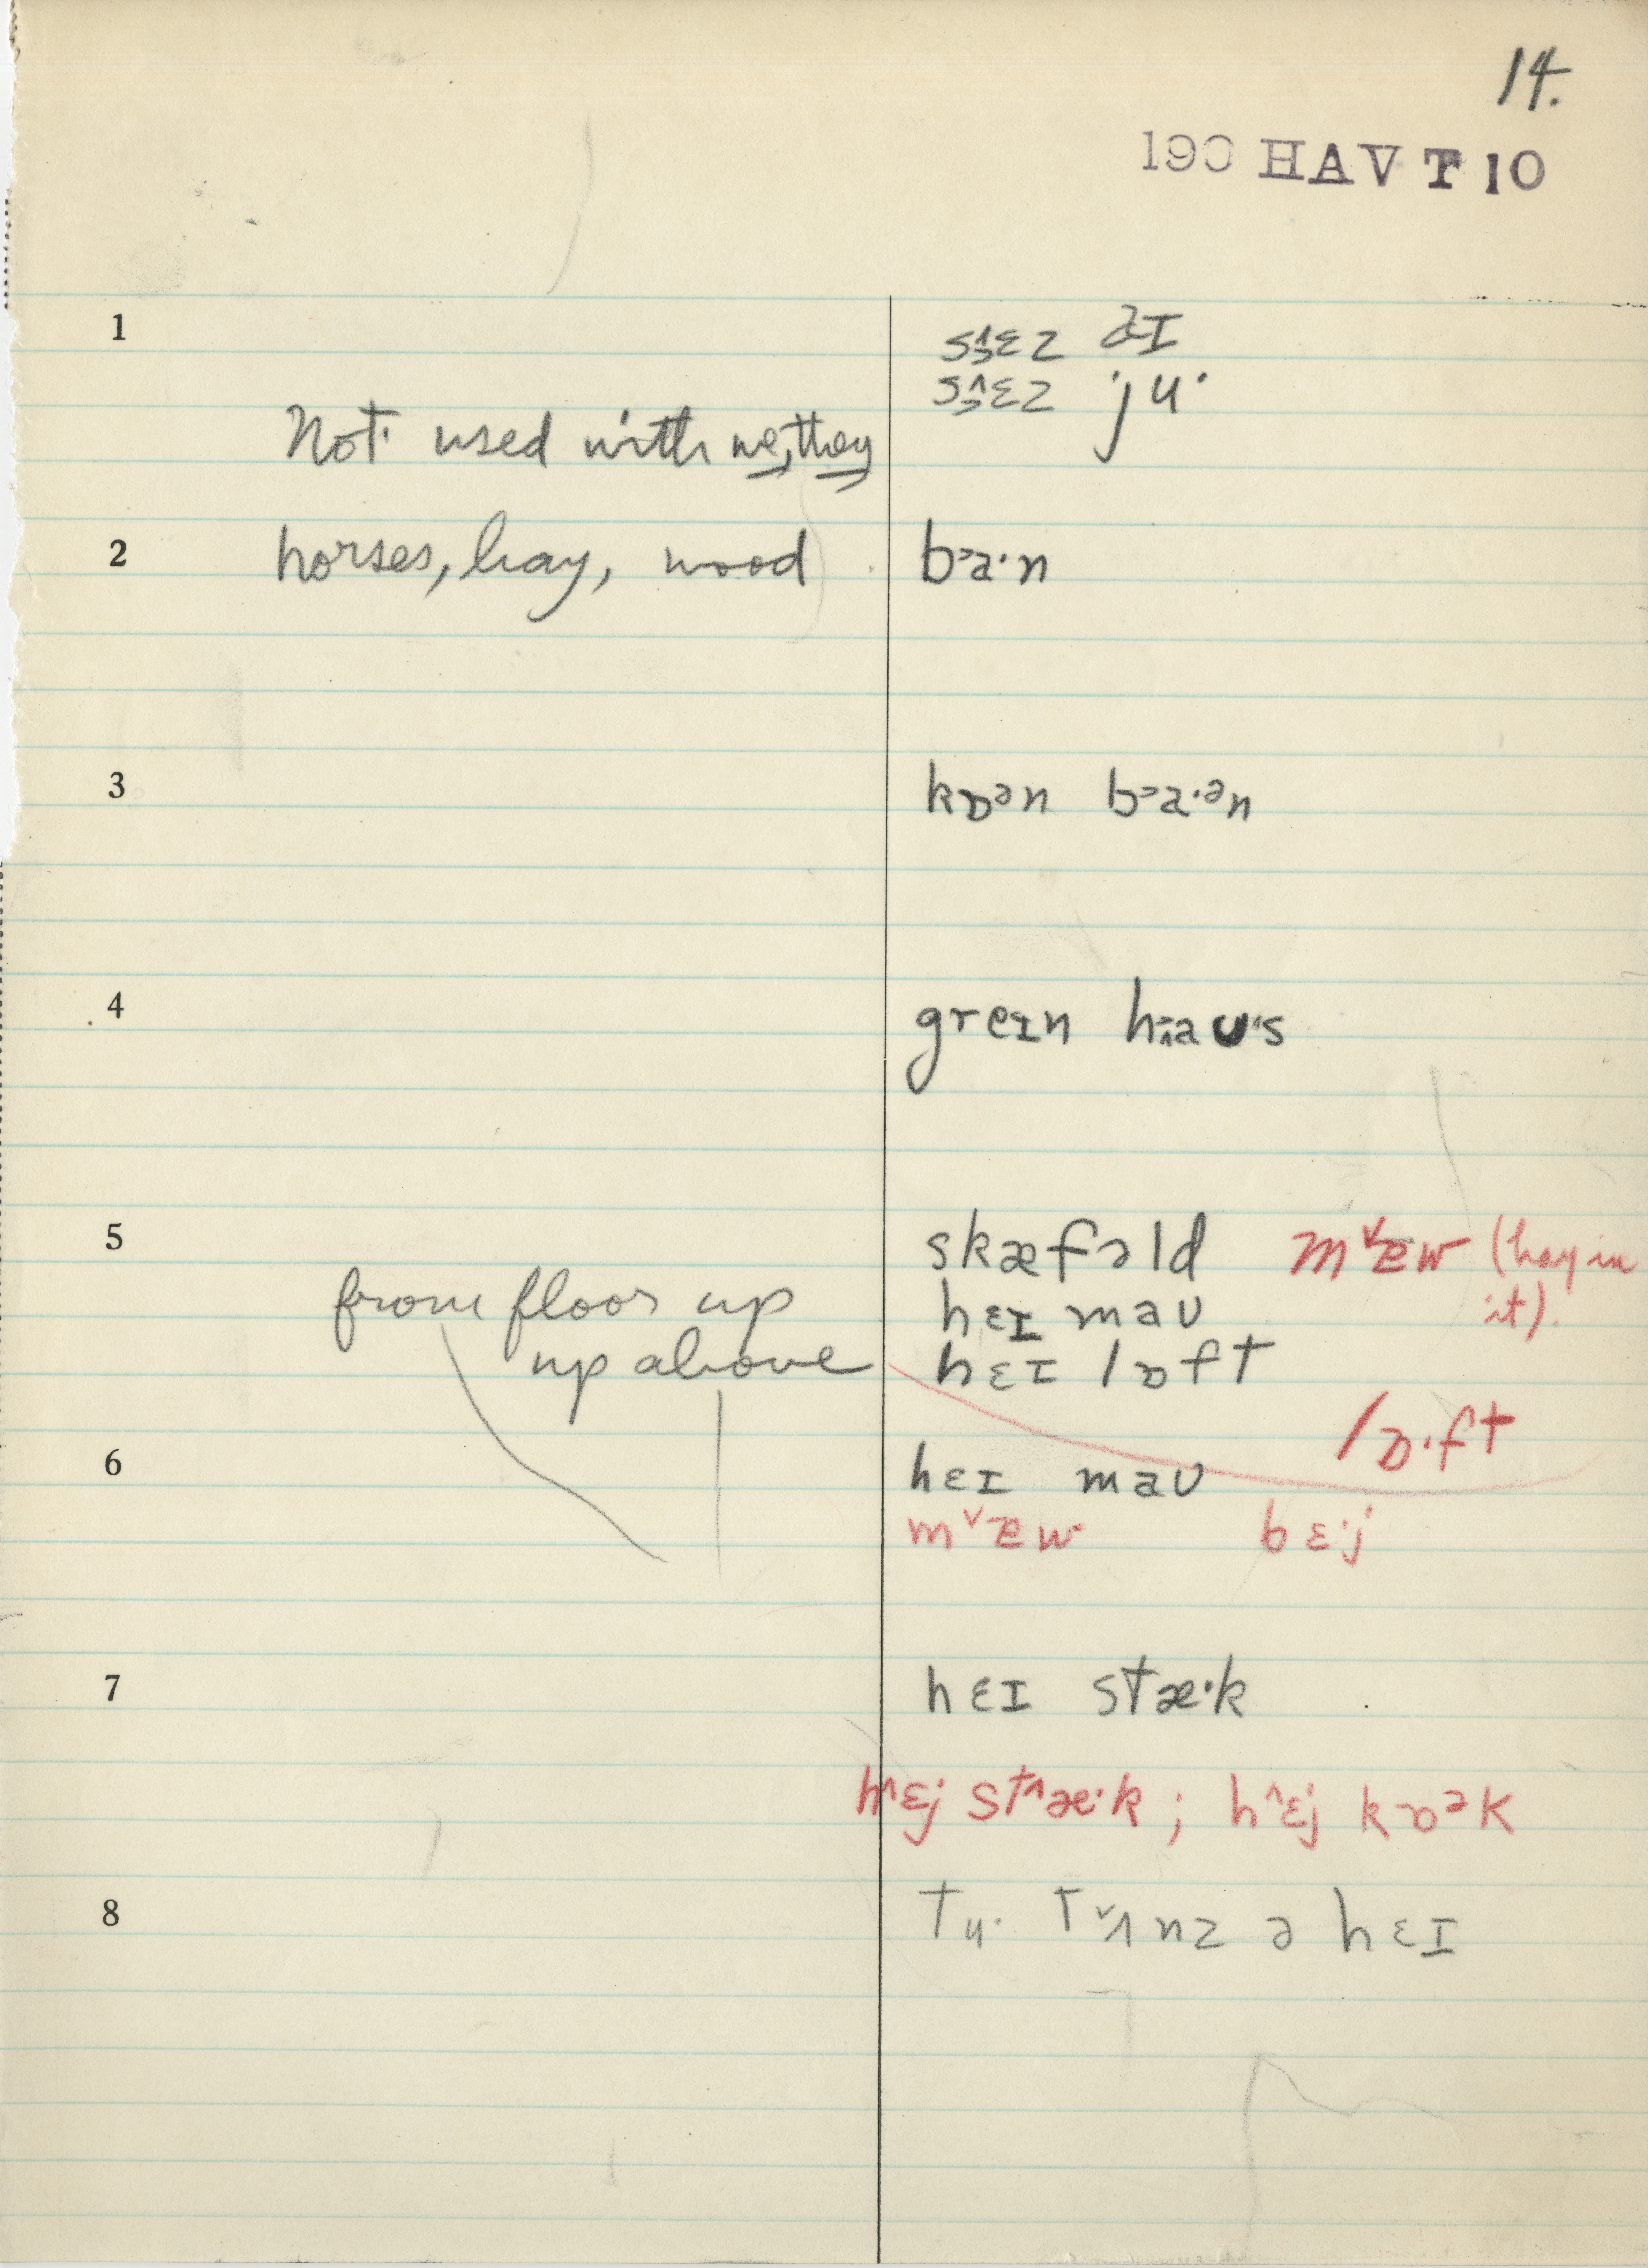 14.
190 HAV T 10
1 s₃̂ɛz əɪ
s₃̂ɛz ju·
Not used with we, they
2 horses, hay, wood b˃a·n
3 kɒᵊn b˃a·ᵊn
4 greɪn haʊ·s
5 skæfəld mᵛæw (hay in
from floor up hɛɪ maʊ it).
up above hɛɪ lɒft
lɒ·ft
6 hɛɪ maʊ
mᵛæw bɛ·j
7 hɛɪ stæ·k
h^ɛj st^æ·k ; h^ɛj kɒᵊk
8 tu· tᵛʌnz ə hɛɪ